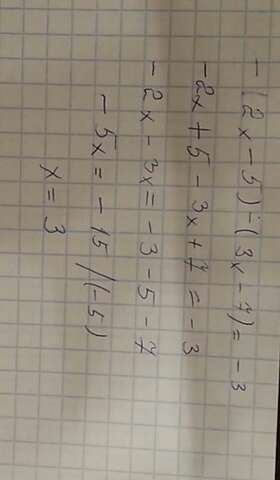 -(2x-5)-(3x-7)=-3
-2x+5-3x+7=-3
-2x-3x=-3-5-7
-5x=-15/(-5)
x=3